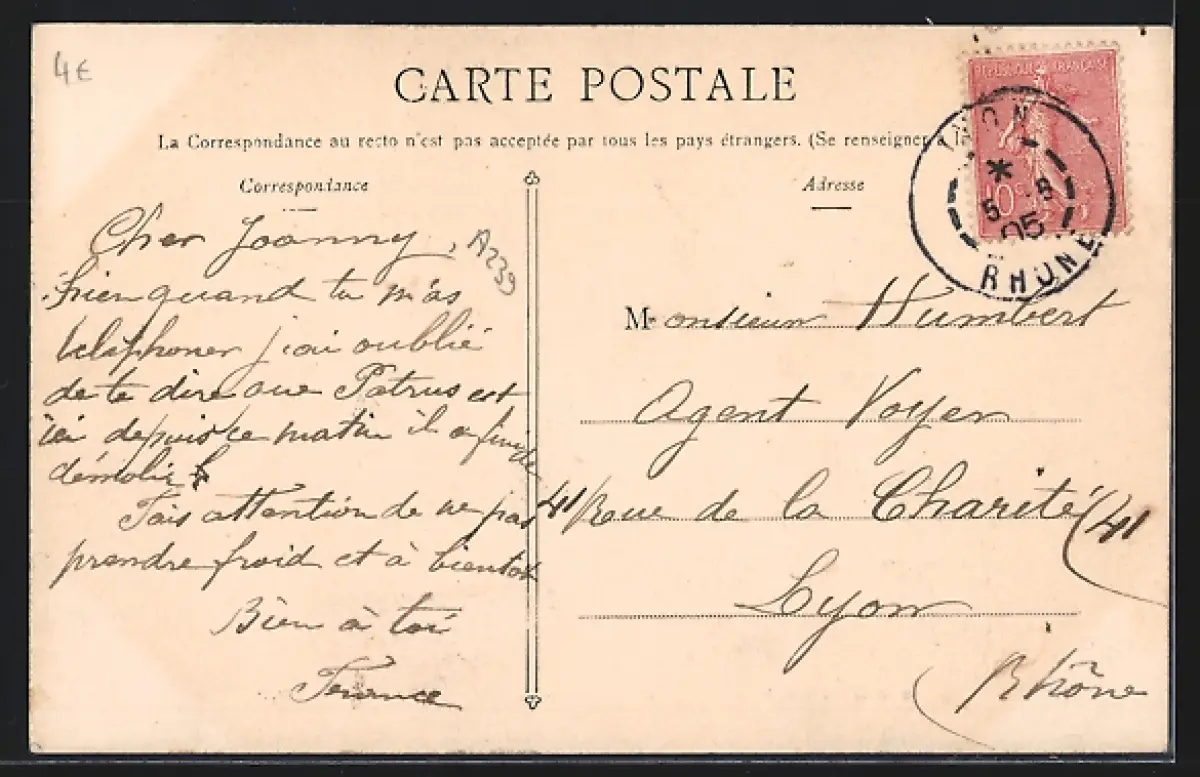 4€
CARTE POSTALE
La Correspondance au recto n'est pas acceptée par tous les pays étrangers. (Se renseigner
REPUBLIQUE FRANÇAISE
10
5 8
05
RHONE
Correspondance
Adresse
Cher Joanny,
A239
quand tu m'as
telephoner j'ai oublié
de te dire que Patrus est
ici depuis ce matin il a fini de
démolir
Fais attention de ne pas
prendre froid et à bientot
Bien à toi
Monsieur Humbert
Agent Voyer
41 Rue de la Charité (41
Lyon
Rhône